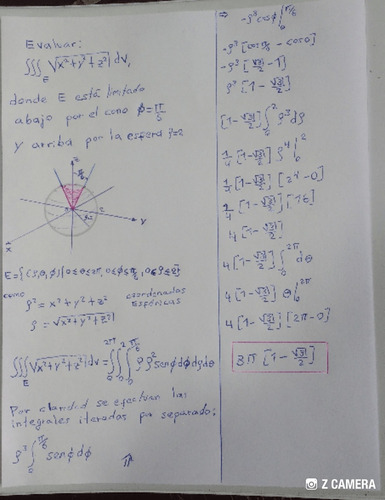 Evaluar:
∭_E √(x²+y²+z²) dv,
donde E está limitado
abajo por el cono φ=π/6
y arriba por la esfera ρ=2
z
y
x
2
E={(ρ,θ,φ)|0≤θ≤2π, 0≤φ≤π/6, 0≤ρ≤2}
como
ρ²=x²+y²+z²
coordenadas
esféricas
ρ=√(x²+y²+z²)
∭_E √(x²+y²+z²) dv = ∫₀^2π ∫₀^2 ∫₀^π/6 ρ ρ² sen φ dφ dρ dθ
Por claridad se efectuan las
integrales iteradas por separado:
ρ³ ∫₀^π/6 sen φ dφ
π
⇒ -ρ³ cos φ |₀^π/6
-ρ³ [cos π/6 - cos 0]
-ρ³ [√3/2 - 1]
ρ³ [1 - √3/2]
[1 - √3/2] ∫₀² ρ³ dρ
1/4 [1 - √3/2] ρ⁴ |₀²
1/4 [1 - √3/2] [2⁴ - 0]
1/4 [1 - √3/2] [16]
4 [1 - √3/2]
4 [1 - √3/2] ∫₀^2π dθ
4 [1 - √3/2] θ |₀^2π
4 [1 - √3/2] [2π - 0]
8π [1 - √3/2]
Z CAMERA